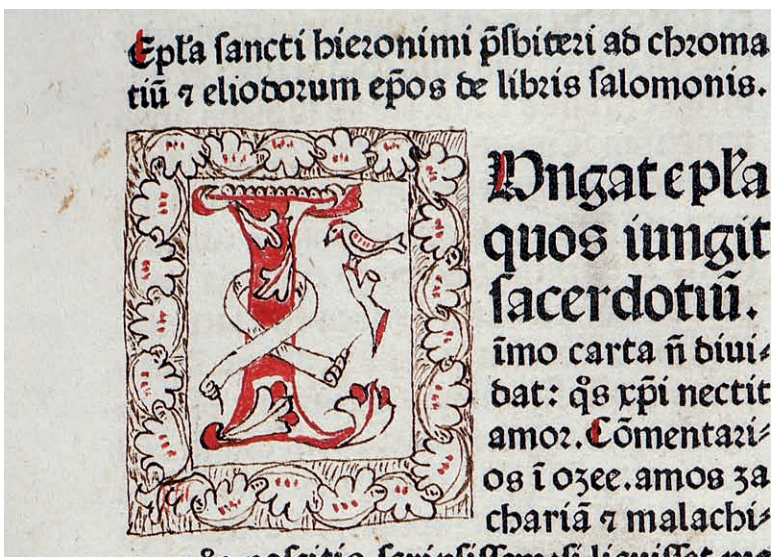 Epl̄a sancti hieronimi p̄sbiteri ad chroma
tiū ⁊ eliodorum ep̄os de libris salomonis.
I
Ungat epl̄a
quos iungit
sacerdotiū.
īmo carta n̄ diui⸗
dat: q̊s xp̄i nectit
amor. Cōmentari⸗
os ī ozee. amos za
chariā ⁊ malachi⸗